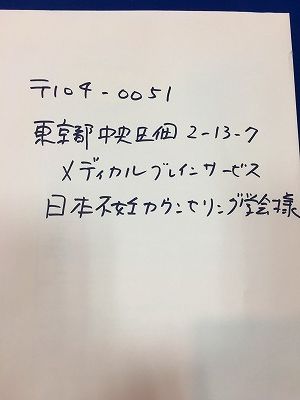 〒104-0051
東京都中央区佃2-13-7
メディカルブレインサービス
日本不妊カウンセリング学会様